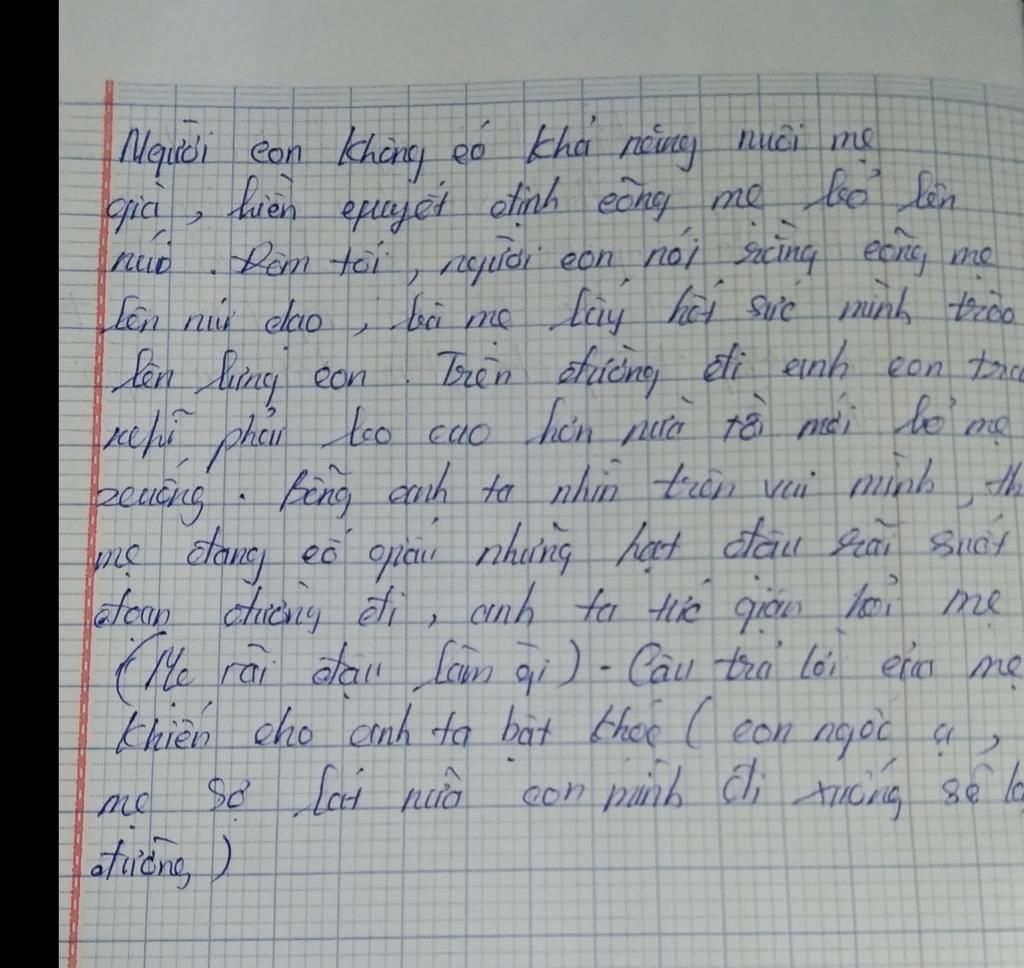 Người con không có khả năng nuôi mẹ
già, liền quyết định cõng mẹ bỏ lên
núi. Đêm tối, người con nói rằng cõng mẹ
lên núi dạo, bà mẹ lấy hết sức mình trèo
lên lưng con. Trên đường đi anh con
nghĩ phải leo cao hơn nữa rồi mới bỏ mẹ
xuống. Bỗng anh ta nhìn trên vai mình,
mẹ đang cố giấu những hạt đậu rãi suốt
đoạn đường đi, anh ta tức giận hỏi mẹ
(Mẹ rãi đậu làm gì) - Câu trả lời của mẹ
khiến cho anh ta bật khóc (con ngốc ạ,
mẹ sợ lát nữa con mình đi xuống sẽ
đường)